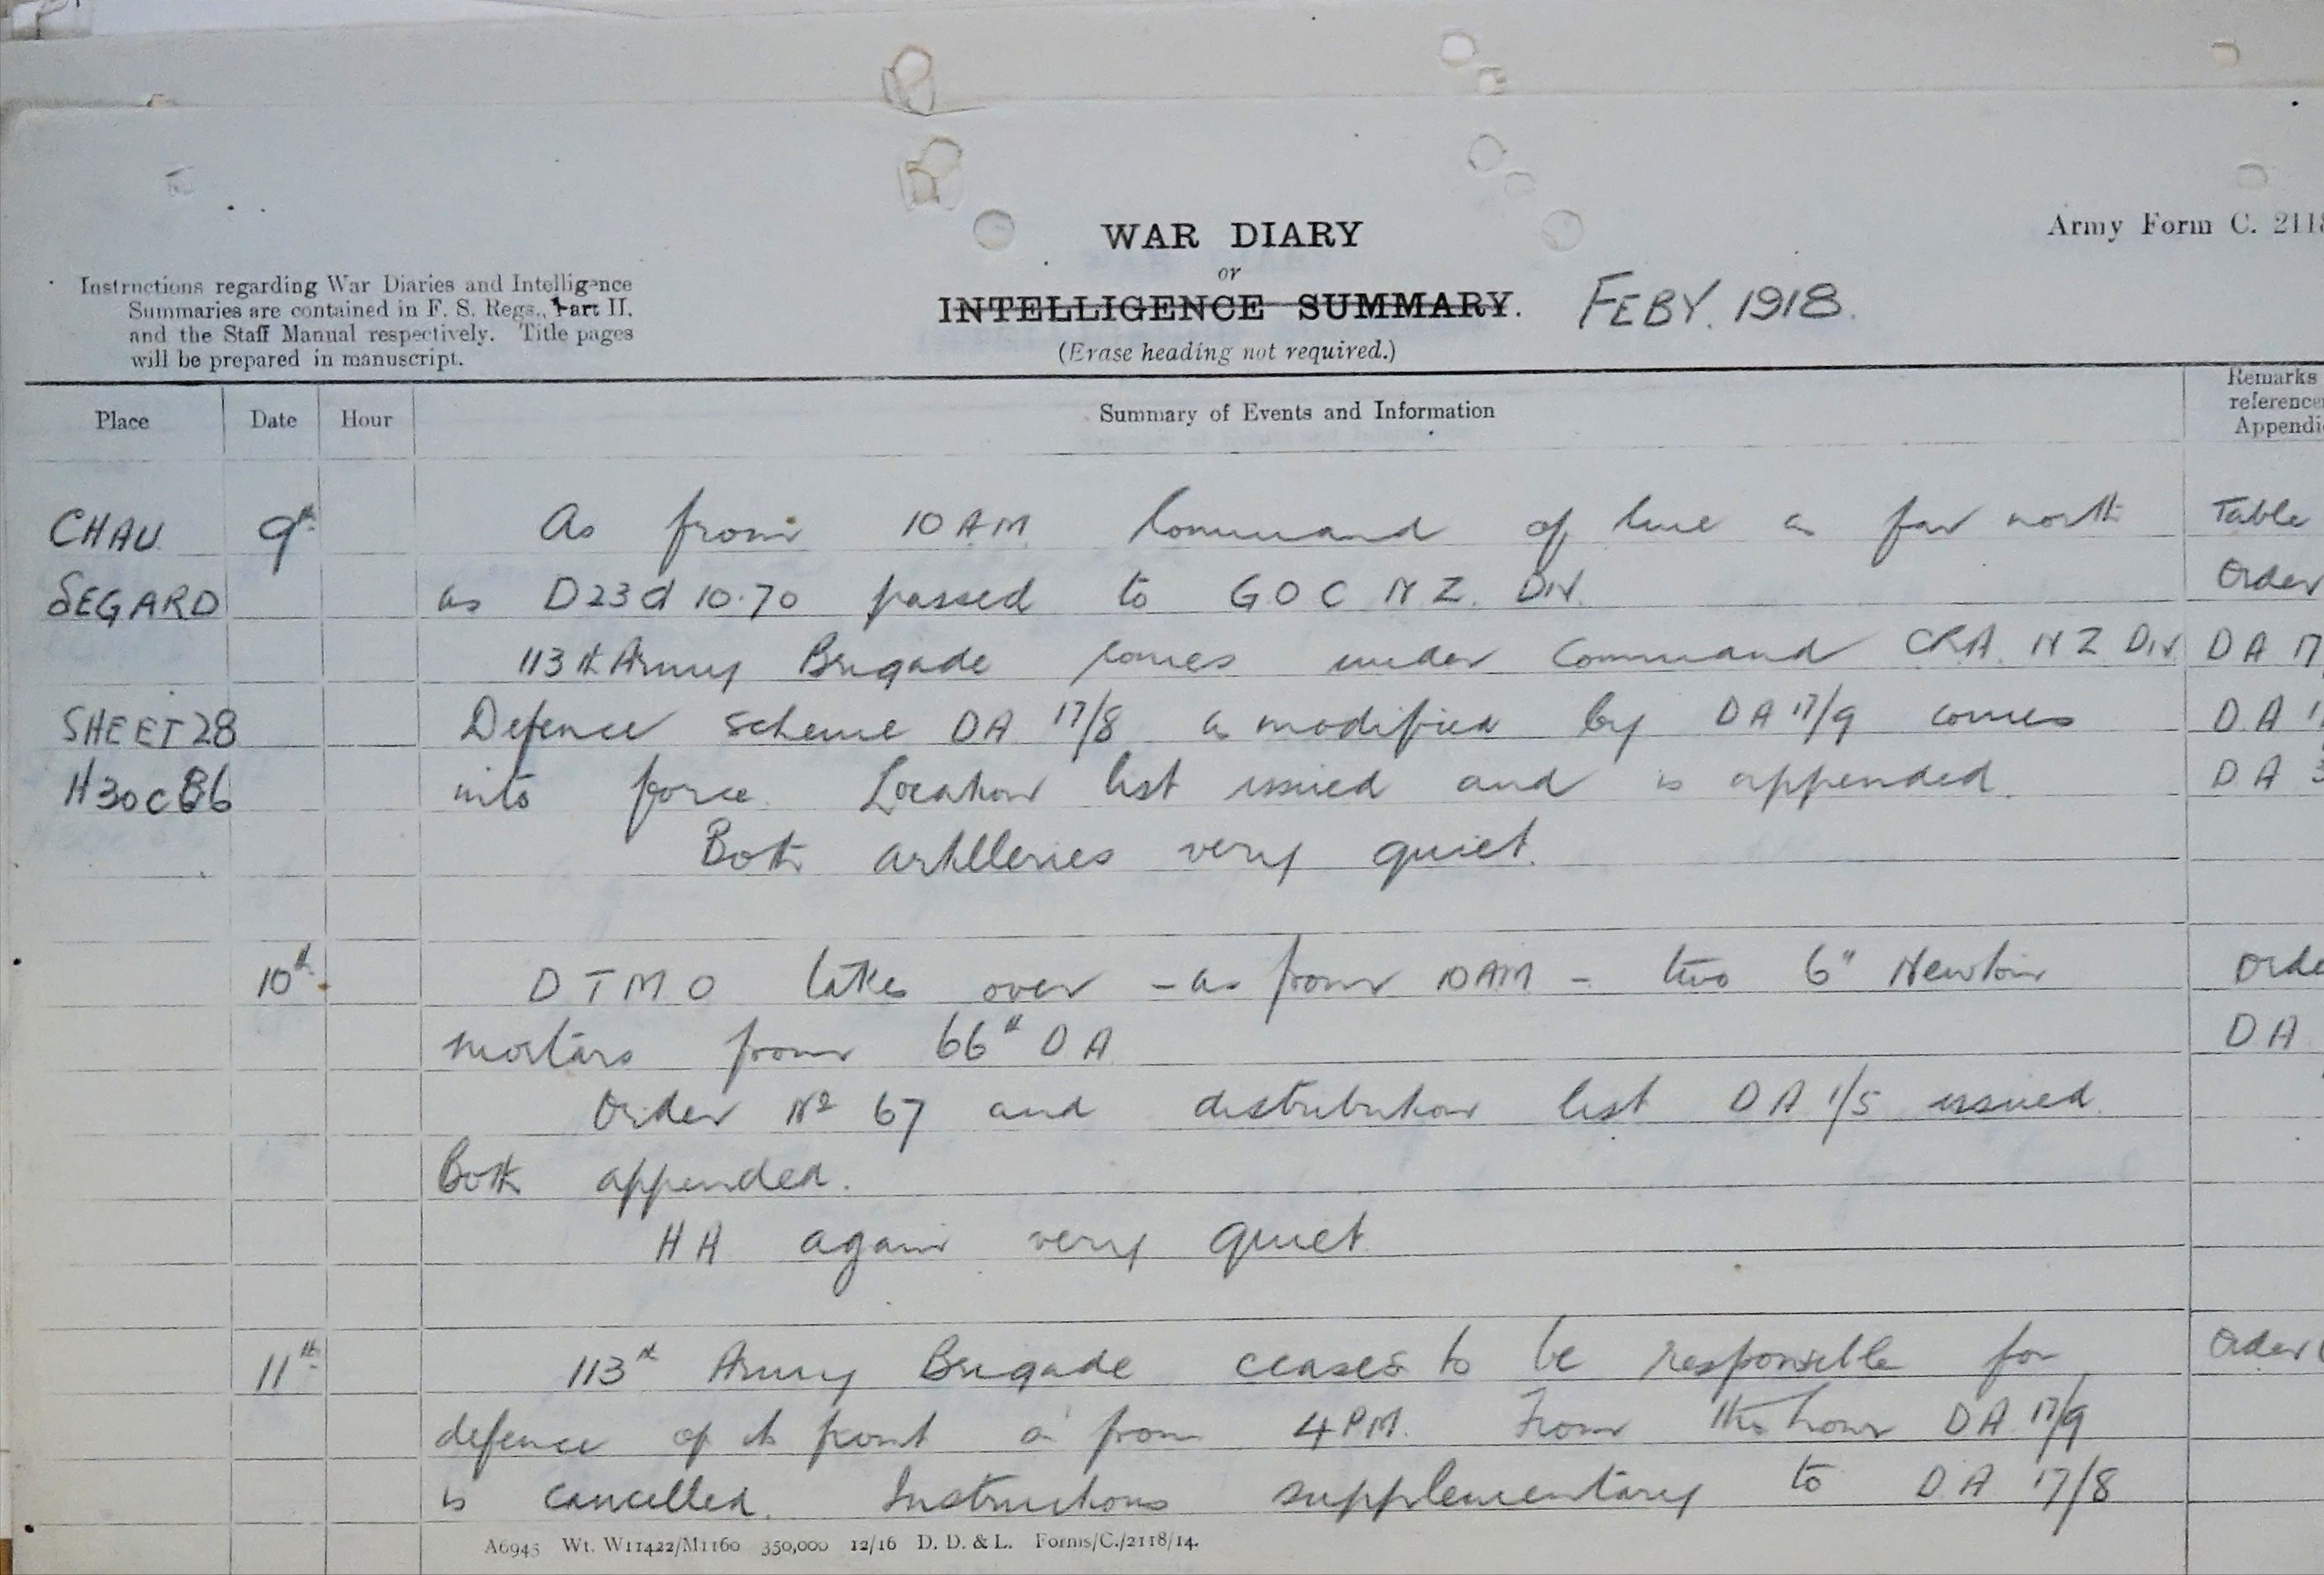 WAR DIARY
or
INTELLIGENCE SUMMARY.
FEBY. 1918.
(Erase heading not required.)
Army Form C. 2118
Instructions regarding War Diaries and Intelligence
Summaries are contained in F. S. Regs., Part II.
and the Staff Manual respectively. Title pages
will be prepared in manuscript.
Place Date Hour Summary of Events and Information Remarks
reference
Appendi
CHAU 9th As from 10 AM Command of line as far north Table
SEGARD as D23d 10.70 passed to GOC NZ. Div. Order
113th Army Brigade comes under Command CRA. NZ Div DA 17
SHEET 28 Defence scheme DA 17/8 as modified by DA 17/9 comes DA 1
H30c86 into force. Location list issued and is appended. DA 3
Both artilleries very quiet.
10th DTMO takes over - as from 10AM - two 6" Newton Orde
mortars from 66th DA DA
Order No 67 and distribution list DA 1/5 issued.
Both appended.
HA again very quiet
11th 113th Army Brigade ceases to be responsible for Order
defence of its front as from 4 PM. From this hour DA 17/9
is cancelled. Instructions supplementary to DA 17/8
A6945 Wt. W11422/M1160 350,000 12/16 D. D. & L. Forms/C./2118/14.